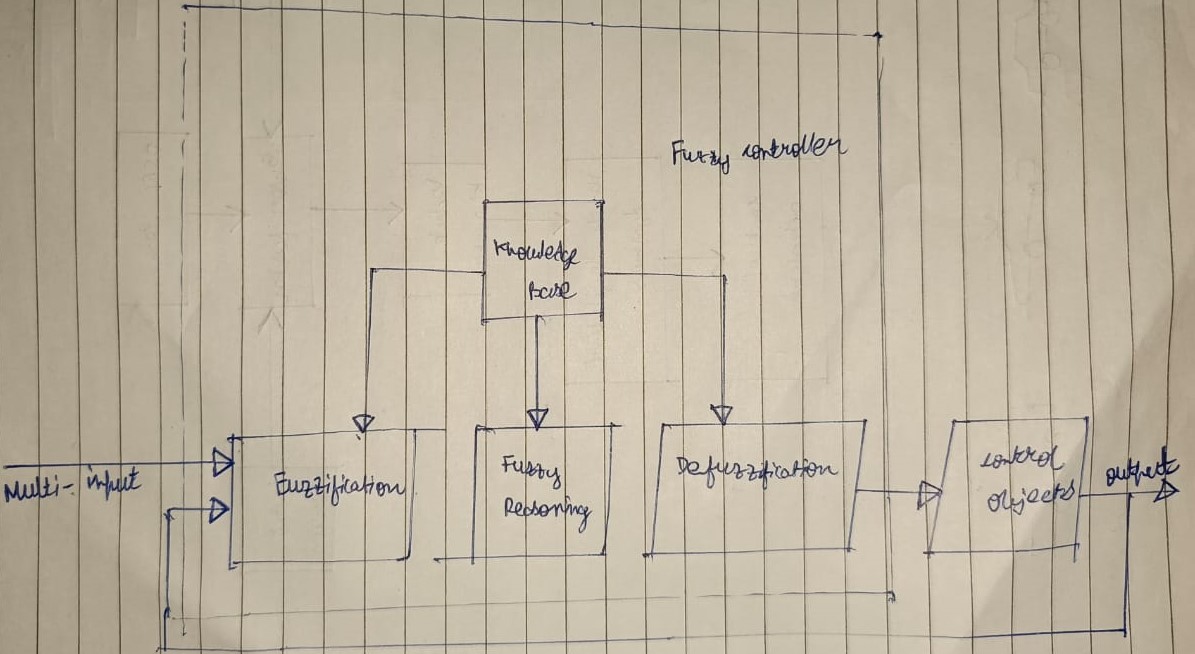 Fuzzy controller
Knowledge
Base
Multi- input
Fuzzification
Fuzzy
Reasoning
Defuzzification
control
objects
output